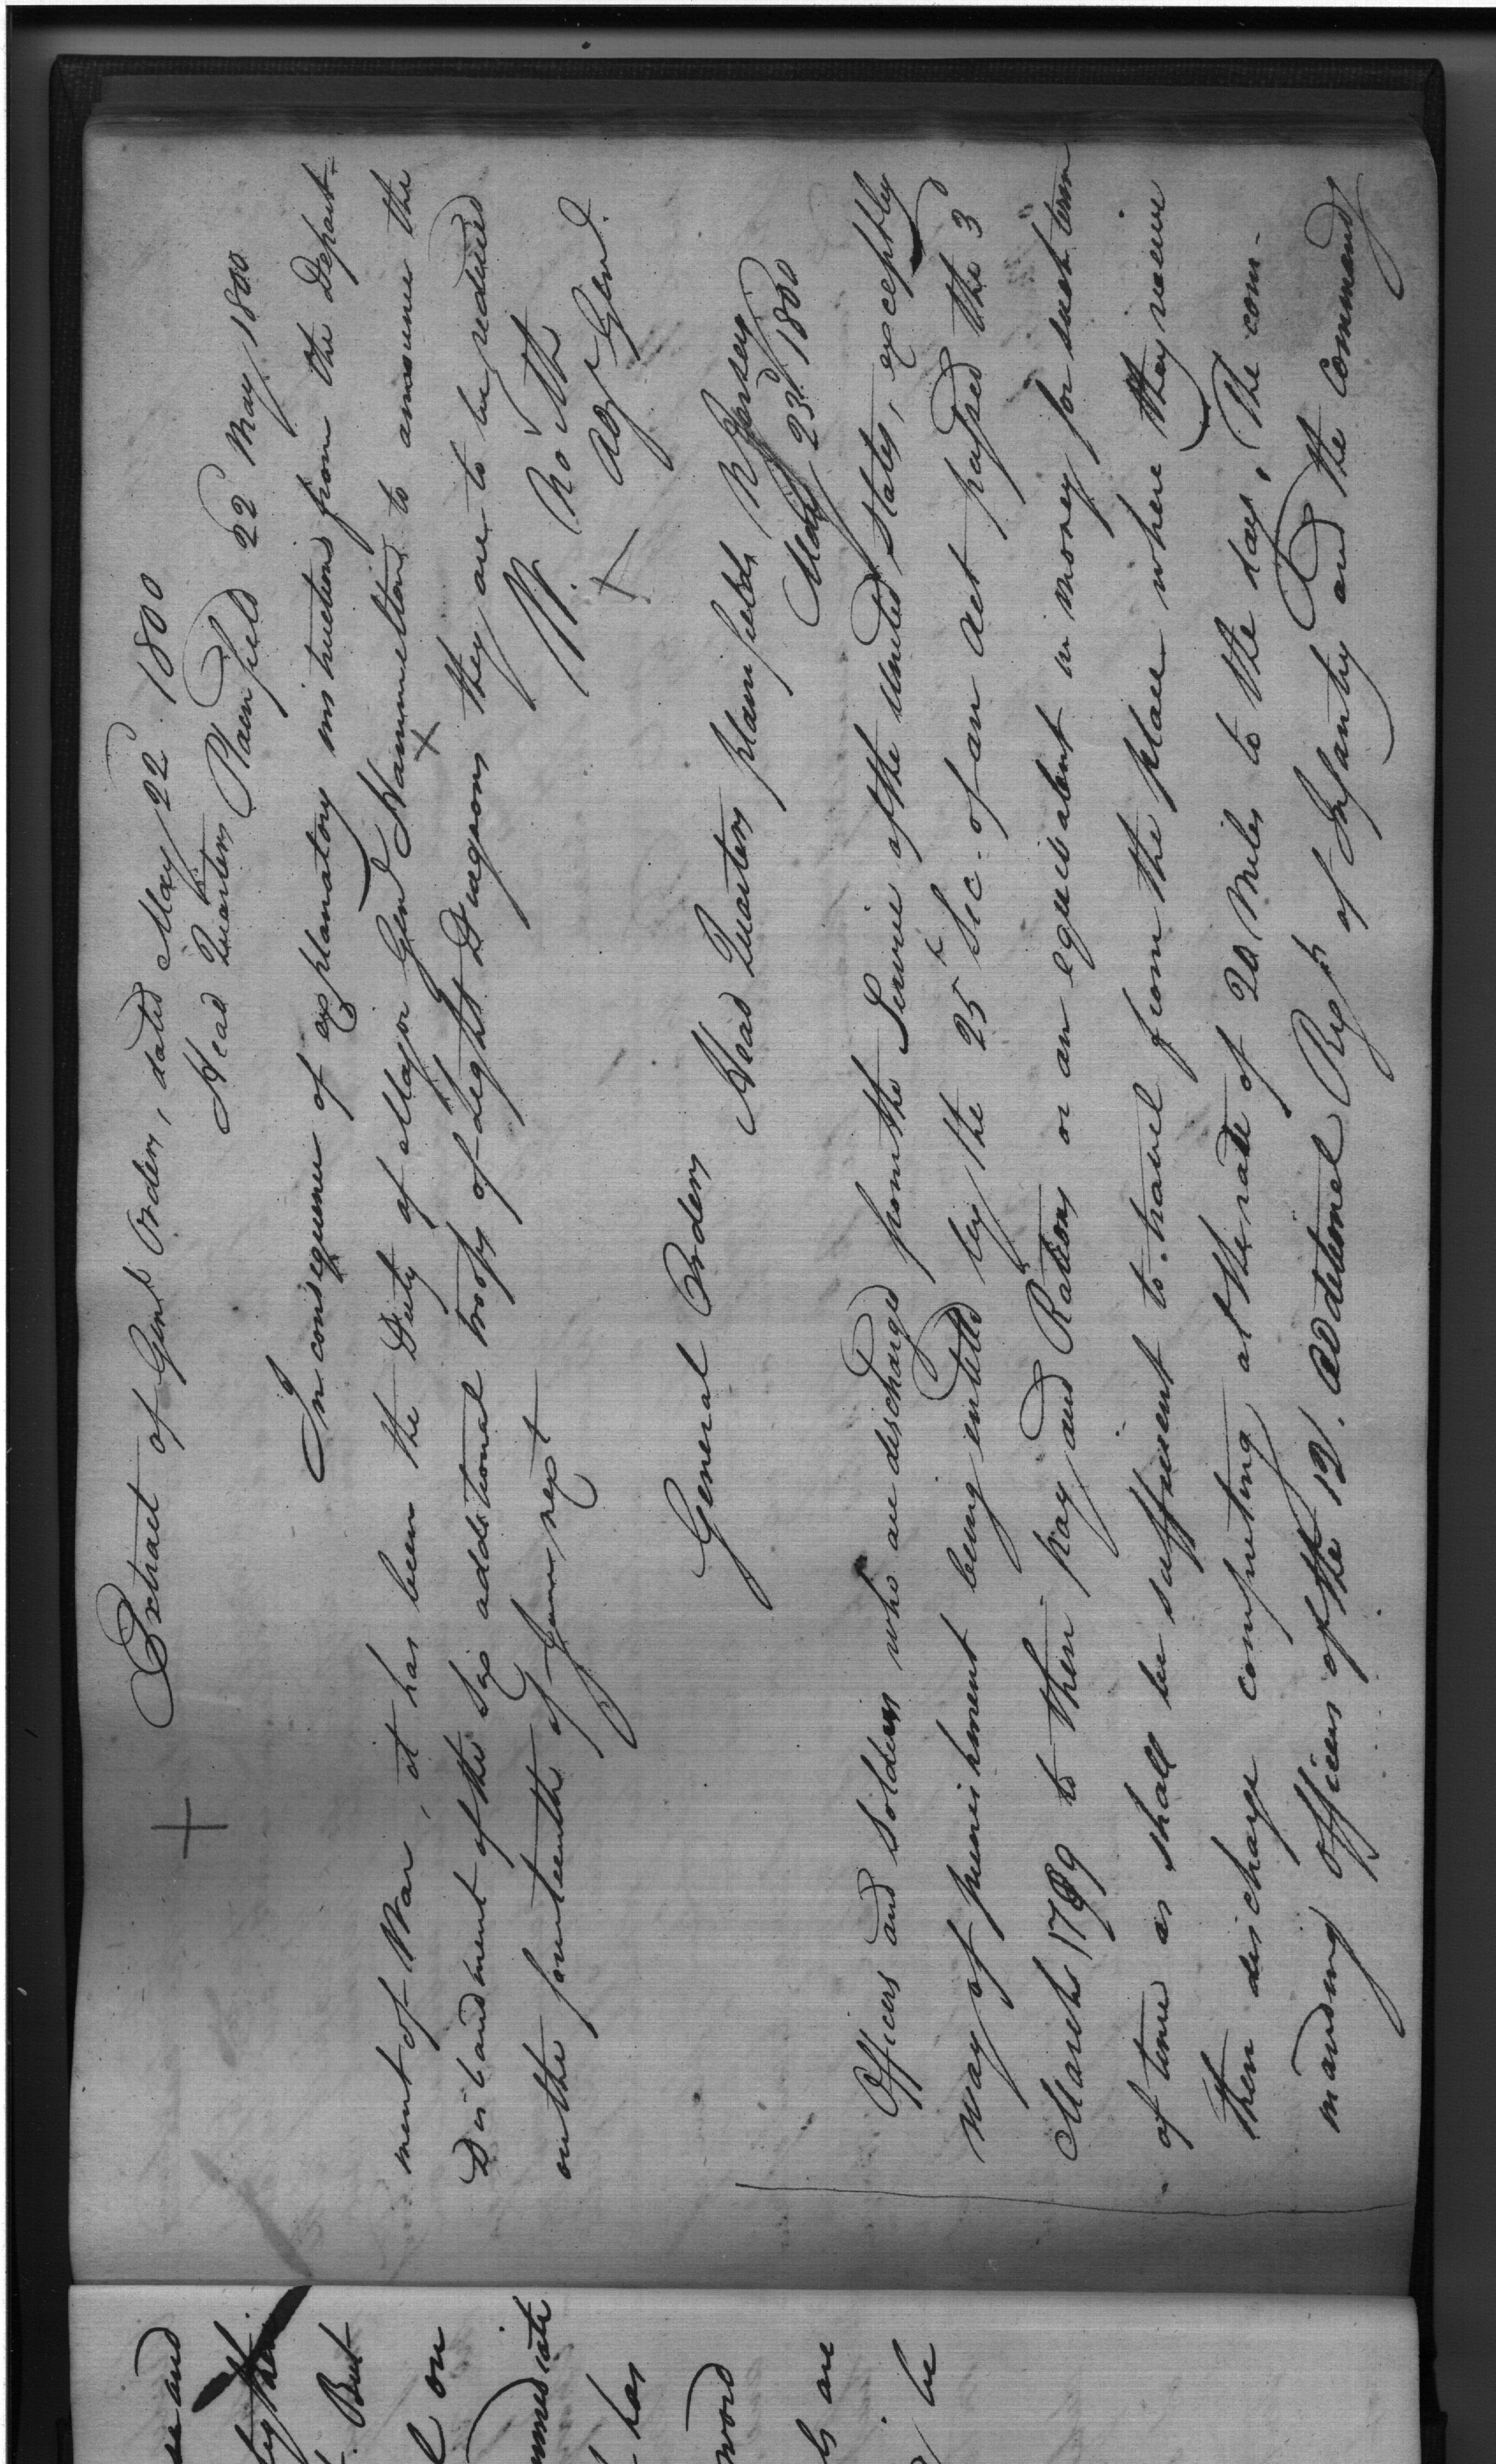 Extract of Genl Orders, dated May 22d 1800
Head Quarters Plainfield 22d May 1800
In consequence of explanatory instructions from the Depart-
ment of War, it has been the Duty of Major Genl Hammelton to announce the
Disbandment of the Six additional troops of Light Dragoons they are to be reduced
on the fourteenth of June next
W. North
Adjt Genl.
General Orders Head Quarters plainfield, N Jersey
May 23d 1800
Officers and Soldiers who are discharged from the Service of the United States, except by
way of punishment being entitled by the 25th Sec. of an act passed the 3d
March 1799 to their pay and Rations or an equivalent in money for such term
of time as shall be sufficient to travel from the place where they receive
their discharge computing at the rate of 20 Miles to the day, The com-
manding officers of the 12. additional Regts of Infantry and the Commandg
se and
But
l on
mmediate
has
word
ls are
be